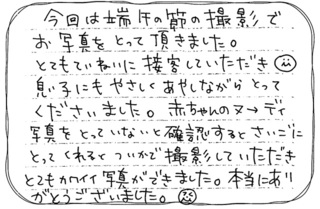 今回は端午の節の撮影で
お写真をとって頂きました。
とてもていねいに接客していただき
息子にもやさしくあやしながらとって
くださいました。赤ちゃんのヌーディ
写真をとっていないと確認するとさいごに
とってくれるとついかで撮影していただき
とてもカワイイ写真ができました。本当にあり
がとうございました。